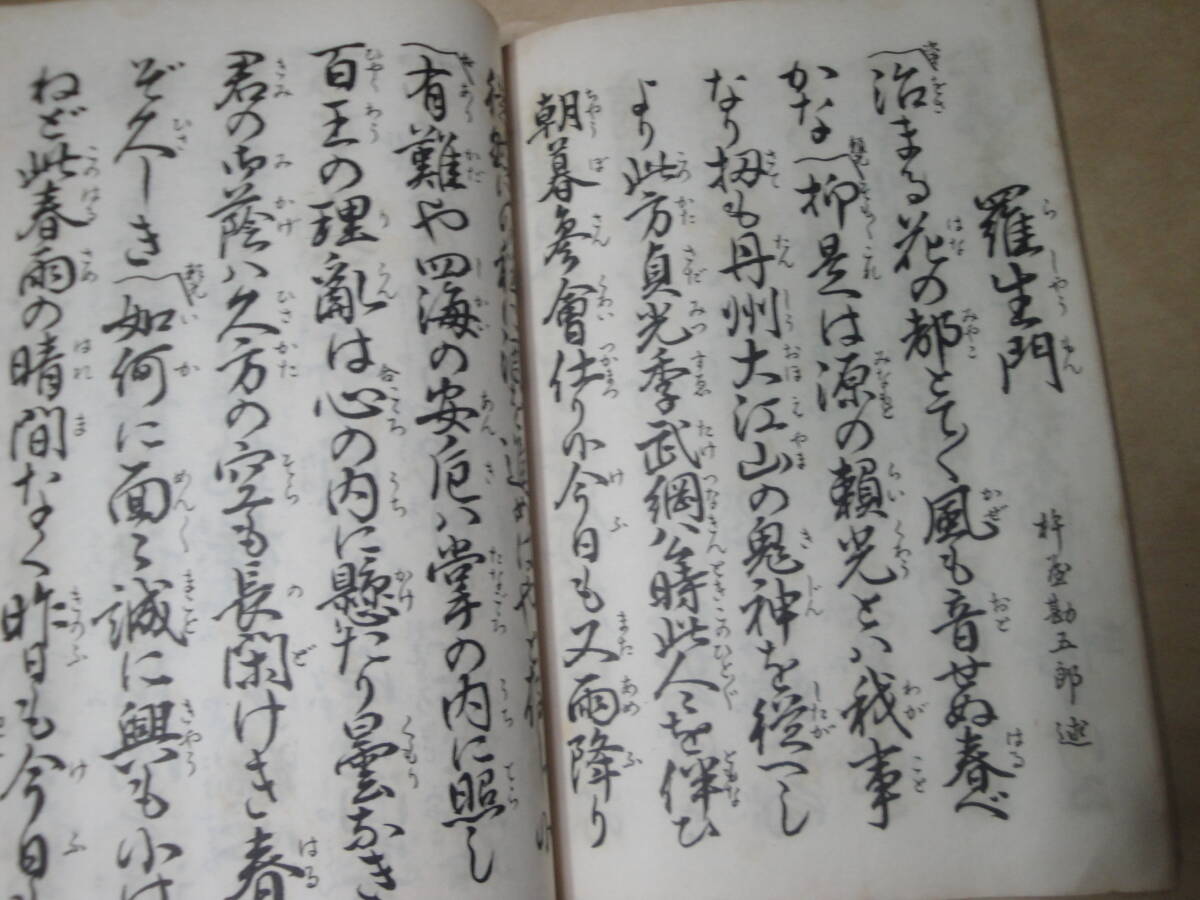 羅生門
杵屋勘五郎述
治まる花の都とて風も音せぬ春べ
かな抑是は源の頼光とハ我事
なり扨も丹州大江山の鬼神を従へし
より此方貞光季武綱公時此人々を伴ひ
朝暮参會仕り小今日も又雨降り
有難や四海の安危ハ掌の内に照し
百王の理乱は心の内に懸たり曇なき
君の御蔭ハ久方の空も長閑けき春
ぞ久しき如何に面々誠に興も
ねど此春雨の晴間なく昨日も今日